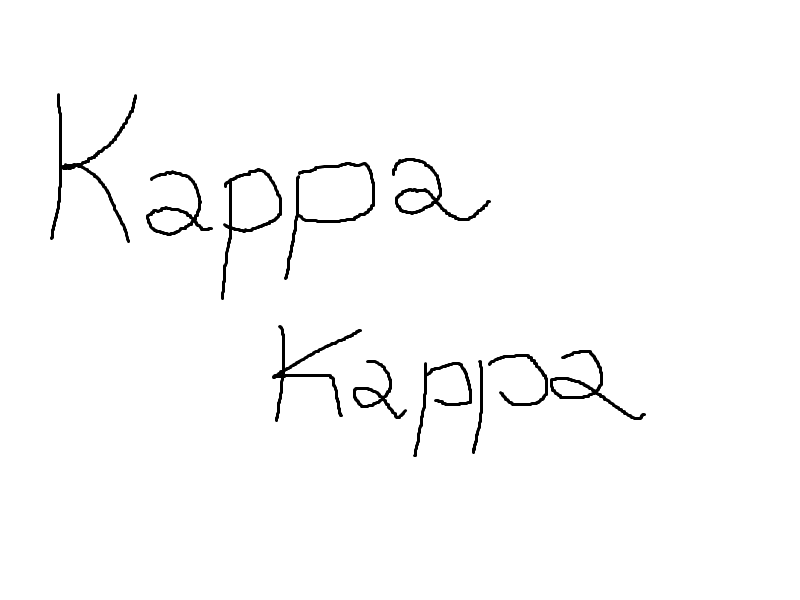 Kappa
Kappa